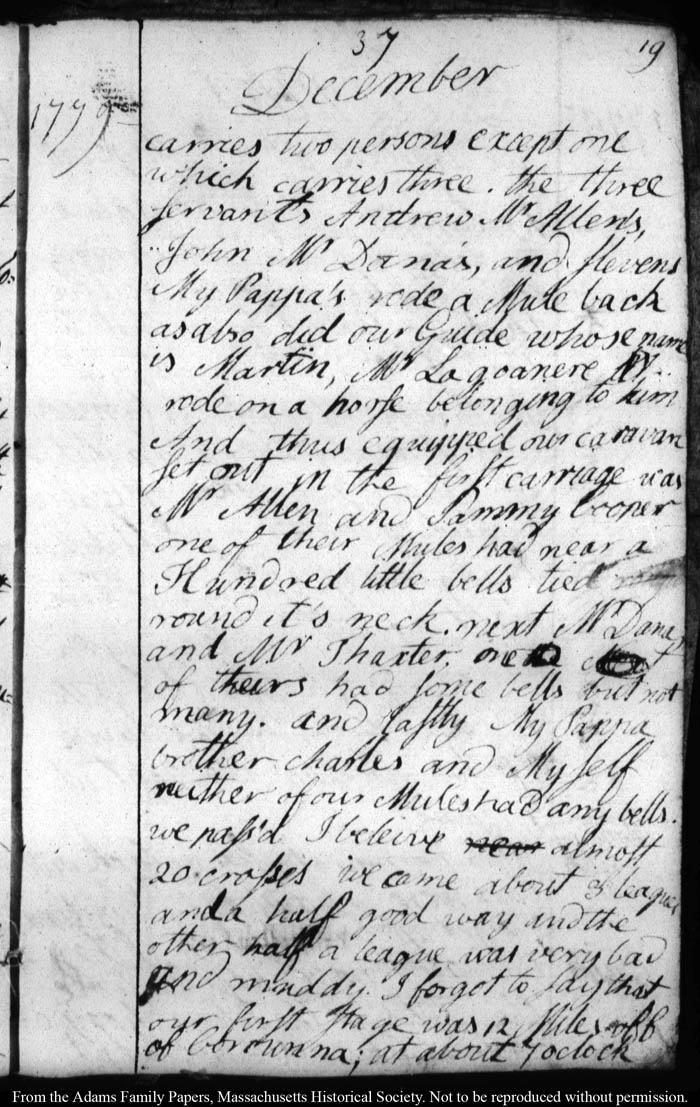 37
19
December
1779
carries two persons except one
which carries three. the three
servants Andrew Mr Allen's,
John Mr Dana's, and Stevens
My Pappa's rode a Mule back
as also did our Guide whose name
is Martin, Mr Lagoanere
rode on a horse belonging to him
And thus equipped our caravan
set out in the first carriage was
Mr Allen and Sammy Cooper
one of their Mules had near a
Hundred little bells tied
round it's neck. next Mr Dana
and Mr Thaxter. one
of theirs had some bells but not
many. and lastly My Pappa
brother charles and My self
neither of our Mules had any bells.
we pass'd I beleive near almost
20 crosses we came about 3 leagues
and a half good way and the
other half a league was very bad
and muddy. I forgot to say that
our first Stage was 12 Miles off
of Corounna; at about 7 oclock
From the Adams Family Papers, Massachusetts Historical Society. Not to be reproduced without permission.